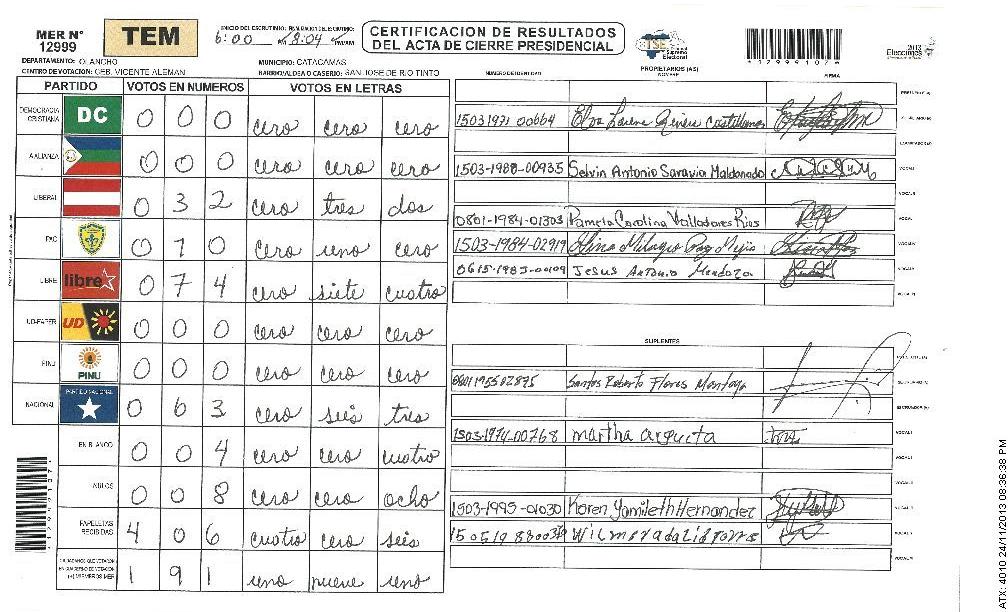 MER N° 12999
TEM
INICIO DEL ESCRUTINIO: FINALIZACION DEL ESCRUTINIO:
6:00 8:04 PM/AM
CERTIFICACION DE RESULTADOS
DEL ACTA DE CIERRE PRESIDENCIAL
TSE Tribunal Supremo Electoral
Elecciones 2013
DEPARTAMENTO: OLANCHO
MUNICIPIO: CATACAMAS
CENTRO DE VOTACION: CEB. VICENTE ALEMAN
BARRIO/ALDEA O CASERIO: SAN JOSE DE RIO TINTO
PARTIDO VOTOS EN NUMEROS VOTOS EN LETRAS
DEMOCRACIA CRISTIANA DC 0 0 0 cero cero cero
ALIANZA 0 0 0 cero cero cero
LIBERAL 0 3 2 cero tres dos
PAC 0 1 0 cero uno cero
LIBRE libre 0 7 4 cero siete cuatro
UD-FAPER UD 0 0 0 cero cero cero
PINU PINU 0 0 0 cero cero cero
NACIONAL PARTIDO NACIONAL 0 6 3 cero seis tres
EN BLANCO 0 0 4 cero cero cuatro
NULOS 0 0 8 cero cero ocho
PAPELETAS RECIBIDAS 4 0 6 cuatro cero seis
CIUDADANOS QUE VOTARON EN CUADERNO DE VOTACION (+) MIEMBROS MER 1 9 1 uno nueve uno
NUMERO DE IDENTIDAD PROPIETARIOS (AS) NOMBRE FIRMA
PRESIDENTE (A)
1503 1971 00664
SECRETARIO (A)
ESCRUTADOR (A)
1503-1988-00935 Selvin Antonio Saravia Maldonado VOCAL I
VOCAL II
0801-1984-01303 Pamela Carolina Valladares Rios VOCAL
1503-1984-02919 VOCAL
Jesus Antonio Mendoza VOCAL
VOCAL
SUPLENTES
0801195502895 Santos Roberto Flores Montoya SECRETARIO (A)
ESCRUTADOR (A)
1503-1974-00768 martha argueta VOCAL I
VOCAL II
VOCAL
1503-1995-01030 Karen Yamileth Hernandez VOCAL
VOCAL
VOCAL
ATX: 4010 24/11/2013 08:36:38 PM